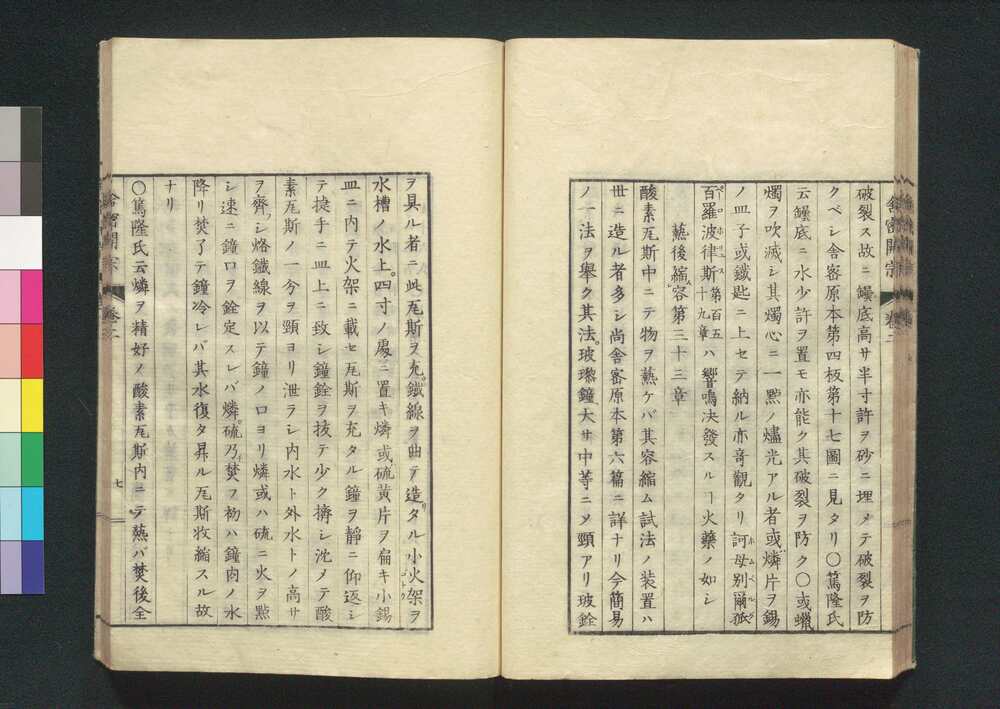 舎密開宗 卷二
破裂ス故ニ罎底高サ半寸許ヲ砂ニ埋メテ破裂ヲ防
クベシ舎密原本第四板第十七圖ニ見タリ〇篤隆氏
云罎底ニ水少許ヲ置モ亦能ク其破裂ヲ防ク〇或蠟
燭ヲ吹滅シ其燭心ニ一㸃ノ燼光アル者或燐片ヲ錫
ノ皿子或鐵匙ニ上セテ納ル亦奇觀タリ訶母別爾瓡
百羅波律斯第百五十九章ハ響鳴決發スルヿ火藥ノ如シ
爇後縮容第三十三章
酸素瓦斯中ニテ物ヲ爇ケバ其容縮ム試法ノ装置ハ
世ニ造ル者多シ尚舎密原本第六篇ニ詳ナリ今簡易
ノ一法ヲ舉ク其法玻瓈鐘大サ中等ニメ頸アリ玻銓
ヲ具ル者ニ此瓦斯ヲ充鐵線ヲ曲テ造タル小火架ヲ
水槽ノ水上四寸ノ處ニ置キ燐或硫黄片ヲ扁キ小錫
皿ニ内テ火架ニ載セ瓦斯ヲ充タル鐘ヲ靜ニ仰返シ
テ捷手ニ皿上ニ致シ鐘銓ヲ抜テ少ク擠シ沈メテ酸
素瓦斯ノ一分ヲ頸ヨリ泄ラシ内水ト外水トノ高サ
ヲ齊シ烙鐵線ヲ以テ鐘ノロヨリ燐或ハ硫ニ火ヲ㸃
シ速ニ鐘口ヲ銓定スレバ燐硫乃焚フ初ハ鐘内ノ水
降リ焚了テ鐘冷レバ其水復タ昇ル瓦斯收縮スル故
ナリ
〇篤隆氏云燐ヲ精好ノ酸素瓦斯内ニテ爇バ焚後全
舎密開宗 卷二
七